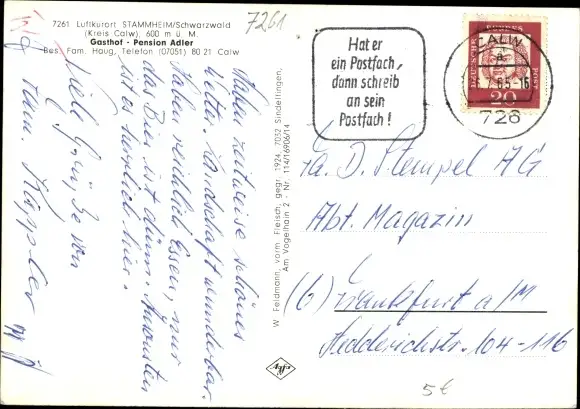 7261 Luftkurort STAMMHEIM/Schwarzwald
(Kreis Calw), 600 m ü. M.
Gasthof - Pension Adler
Bes. Fam. Haug, Telefon (07051) 80 21 Calw
7261
Haben zeitweise schönes
Wetter. Landschaft wunderbar.
Haben reichlich Essen, nur
das Bier ist dünn. Ansonsten
ist es herrlich hier.
Viele Grüße von
Fam. Küppler
W. Feldmann, vorm. Fleisch, gegr. 1924, 7032 Sindelfingen,
Am Vogelhain 2 - Nr. 114/16906/14
Agfa
Hat er
ein Postfach,
dann schreib
an sein
Postfach!
CALW
65-16
726
DEUTSCHE BUNDESPOST
20
Fa. D. Stempel AG
Abt. Magazin
(6) Frankfurt a/M
Hedderichstr. 104-116
5€